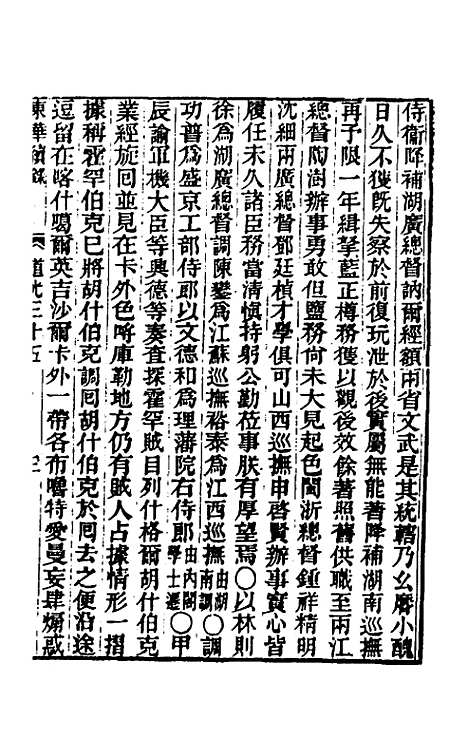 侍衞降補湖廣總督訥爾經額兩省文武是其統轄乃幺麿小醜
日久不獲旣失察於前復玩泄於後實屬無能著降補湖南巡撫
再予限一年緝拏藍正樽務獲以觀後效餘著照舊供職至兩江
總督陶澍辦事勇敢但鹽務尙未大見起色閩浙總督鍾祥精明
沈細兩廣總督鄧廷楨才學俱可山西巡撫申啓賢辦事實心皆
履任未久諸臣務當淸愼持躬公勤莅事朕有厚望焉〇以林則
徐爲湖廣總督調陳鑾爲江蘇巡撫裕泰爲江西巡撫由湖南調〇調
功普爲盛京工部侍郞以文德和爲理藩院右侍郞由內閣學士遷〇甲
辰諭軍機大臣等興德等奏查探霍罕賊目列什格爾胡什伯克
業經旋囘並見在卡外色呼庫勒地方仍有賊人占據情形一摺
據稱霍罕伯克已將胡什伯克調囘胡什伯克於囘去之便沿途
逗留在喀什噶爾英吉沙爾卡外一帶各布嚕特愛曼妄肆煽惑
東華續錄 道光三十五